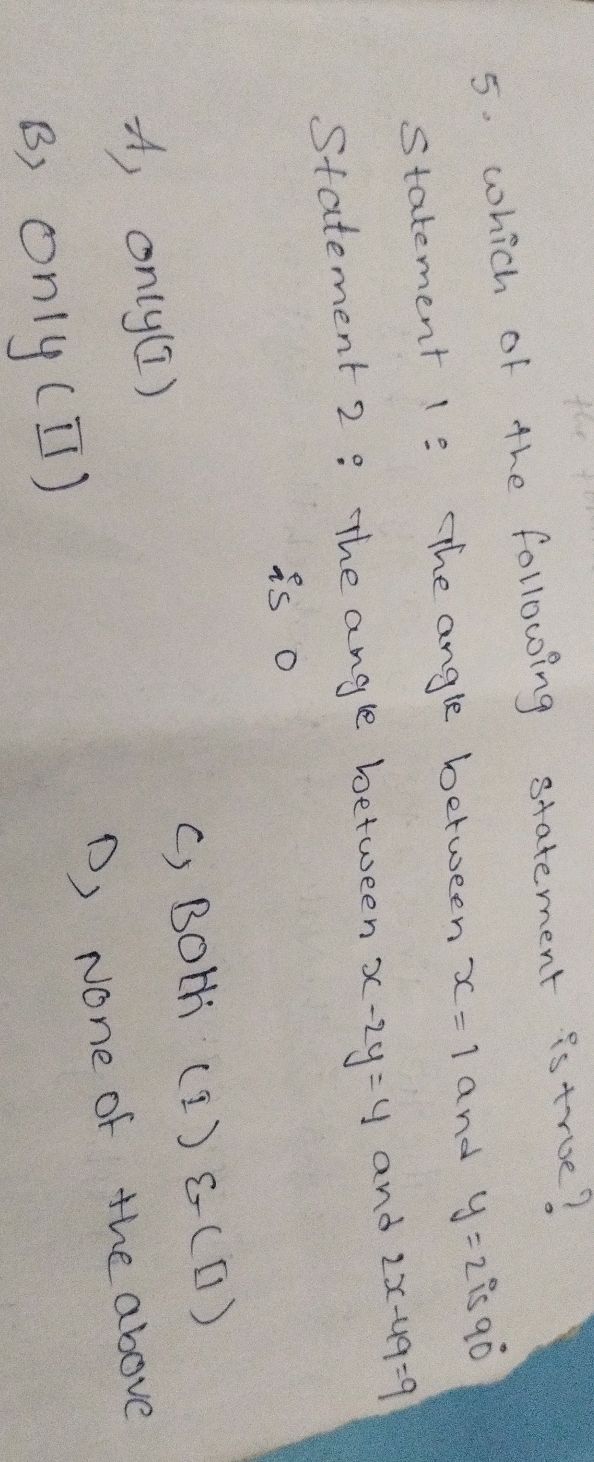 5. which of the following statement is true?
Statement 1: The angle between x=1 and y=2 is 90
Statement 2: The angle between x-2y=4 and 2x-4y=9
is 0
A) only(I)
C) Both (I) & (II)
B) only (II)
D) None of the above